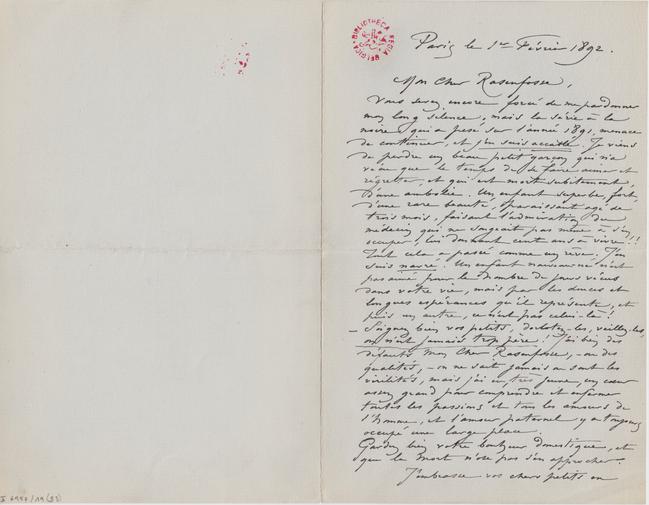 BIBLIOTHECA REGIA BELGICA
Paris le 1er Février 1892.
Mon Cher Rasenfosse,
Vous serez encore forcé de me pardonner
mon long silence, mais la série à la
noire, qui a pesé sur l'année 1891, menace
de continuer, et j'en suis accablé. Je viens
de perdre un beau petit garçon qui n'a
vécu que le temps de se faire aimer et
regretter et qui est mort subitement,
d'une embolie. Un enfant superbe, fort,
d'une rare beauté, paraissant agé de
trois mois, faisant l'admiration du
médecin qui ne songeait pas même à s'en
occuper, lui donnant cent ans à vivre!!
Tout cela a passé comme un rêve. J'en
suis navré. Un enfant nouveau né n'est
pas aimé pour le nombre de jours vécus
dans votre vie, mais par les douces et
longues espérances qu'il représente, et
puis un autre, ce n'est pas celui-là!
— Soignez bien vos petits, dorlotez-les, veillez-les,
on n'est jamais trop père! J'ai bien des
défauts Mon Cher Rasenfosse, — ou des
qualités, — on ne sait jamais où sont les
virilités, mais j'ai eu, très jeune, un cœur
assez grand pour comprendre et enfermer
toutes les passions et tous les amours de
l'homme, et l'amour paternel y a toujours
occupé une large place.
Gardez bien votre bonheur domestique, et
que la mort n'ose pas s'en approcher.
J'embrasse vos chers petits en